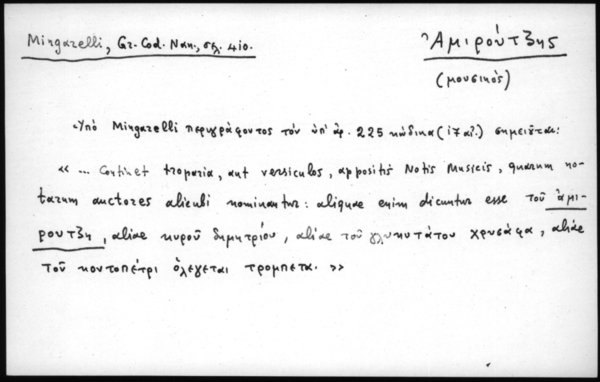 Mingarelli, Gr. Cod. Nan., σελ. 410.
Ἀμιρούτζης
(μουσικός)
Ὑπὸ Mingarelli περιγράφοντος τὸν ὑπ' ἀρ. 225 κώδικα (ιζ αἰ.) σημειοῦται:
« ... Continet troparia, aut versiculos, appositis Notis Musicis, quarum no-
tarum auctores alicubi nominantur: aliquae enim dicuntur esse τοῦ ἀμι-
ρουτζη, aliae κυροῦ δημητρίου, aliae τοῦ γλυκυτάτου χρυσάφα, aliae
τοῦ κοντοπέτρι ὁλεγεται τρομπετα. »